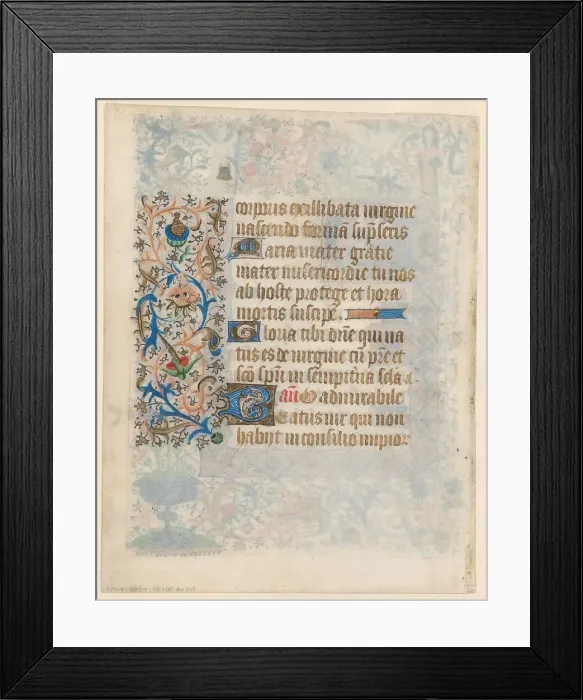 corporis ex illibata uirgine
nascendo formā sūpseris
Maria mater gratie
mater misericordie tu nos
ab hoste protege et hora
mortis suscipe
Gloria tibi dn̄e qui na
tus es de uirgine cū pr̄e et
sc̄o sp̄u in sempit̄na sc̄la a
añ O admirabile
Beatus uir qui non
habijt in consilio impior